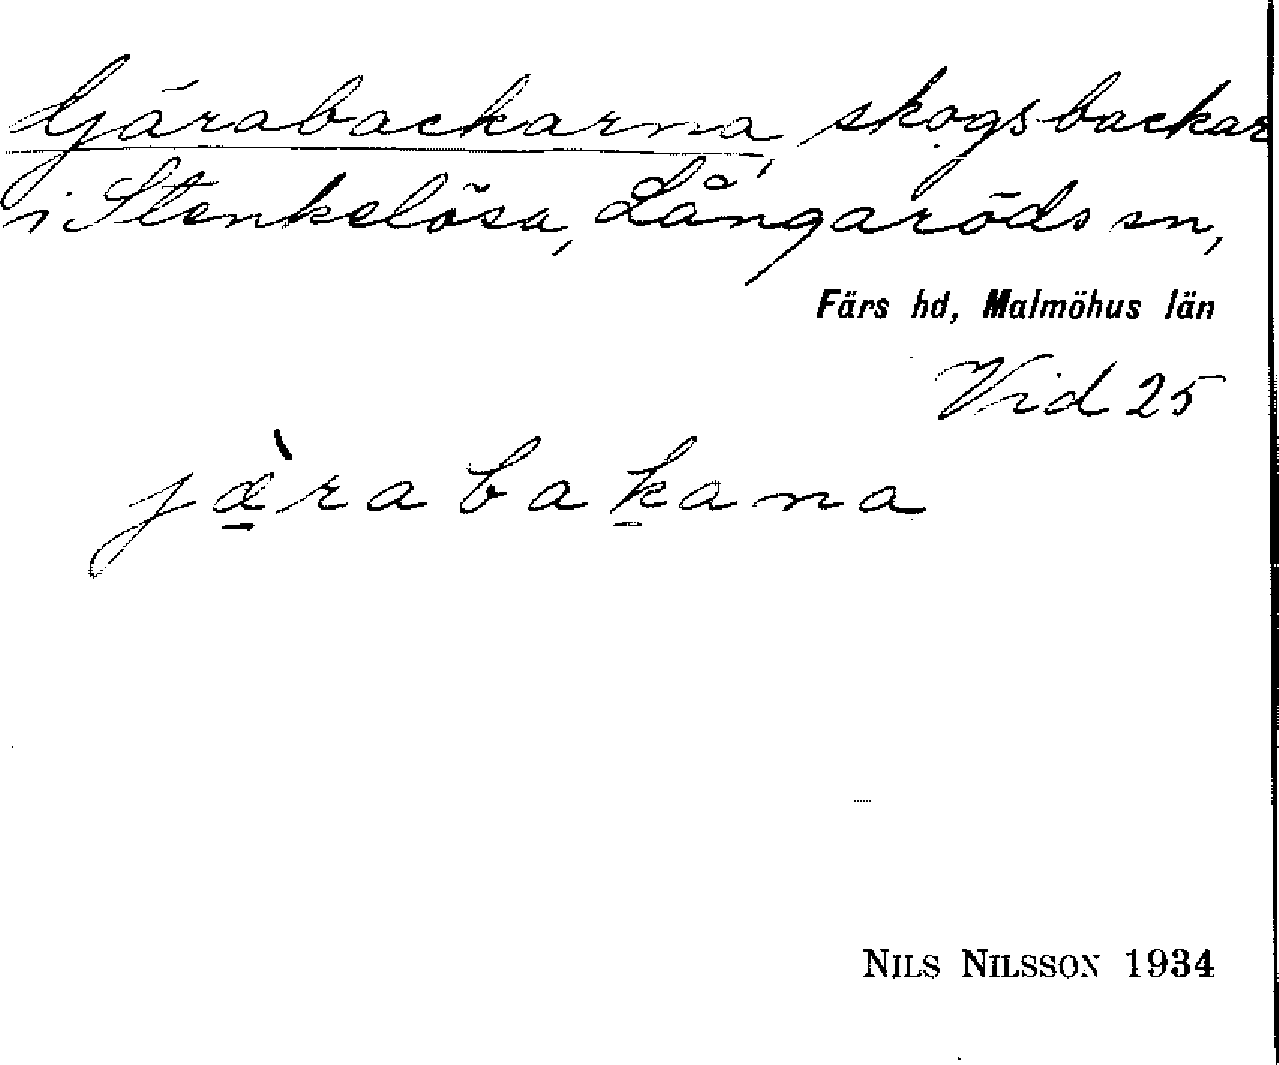 Gjärabackarna, skogsbackar
i Stenkelösa, Långaröds sn,
Färs hd, Malmöhus län
Vid 25
jæ̀rabakana
NILS NILSSON 1934